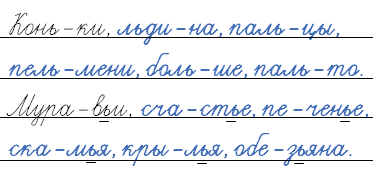 Конь – ки, льди – на, паль – цы,
пель – мени, боль – ше, паль – то.
Мура – вьи, сча – стье, пе – ченье,
ска – мья, кры – лья, обе – зьяна.